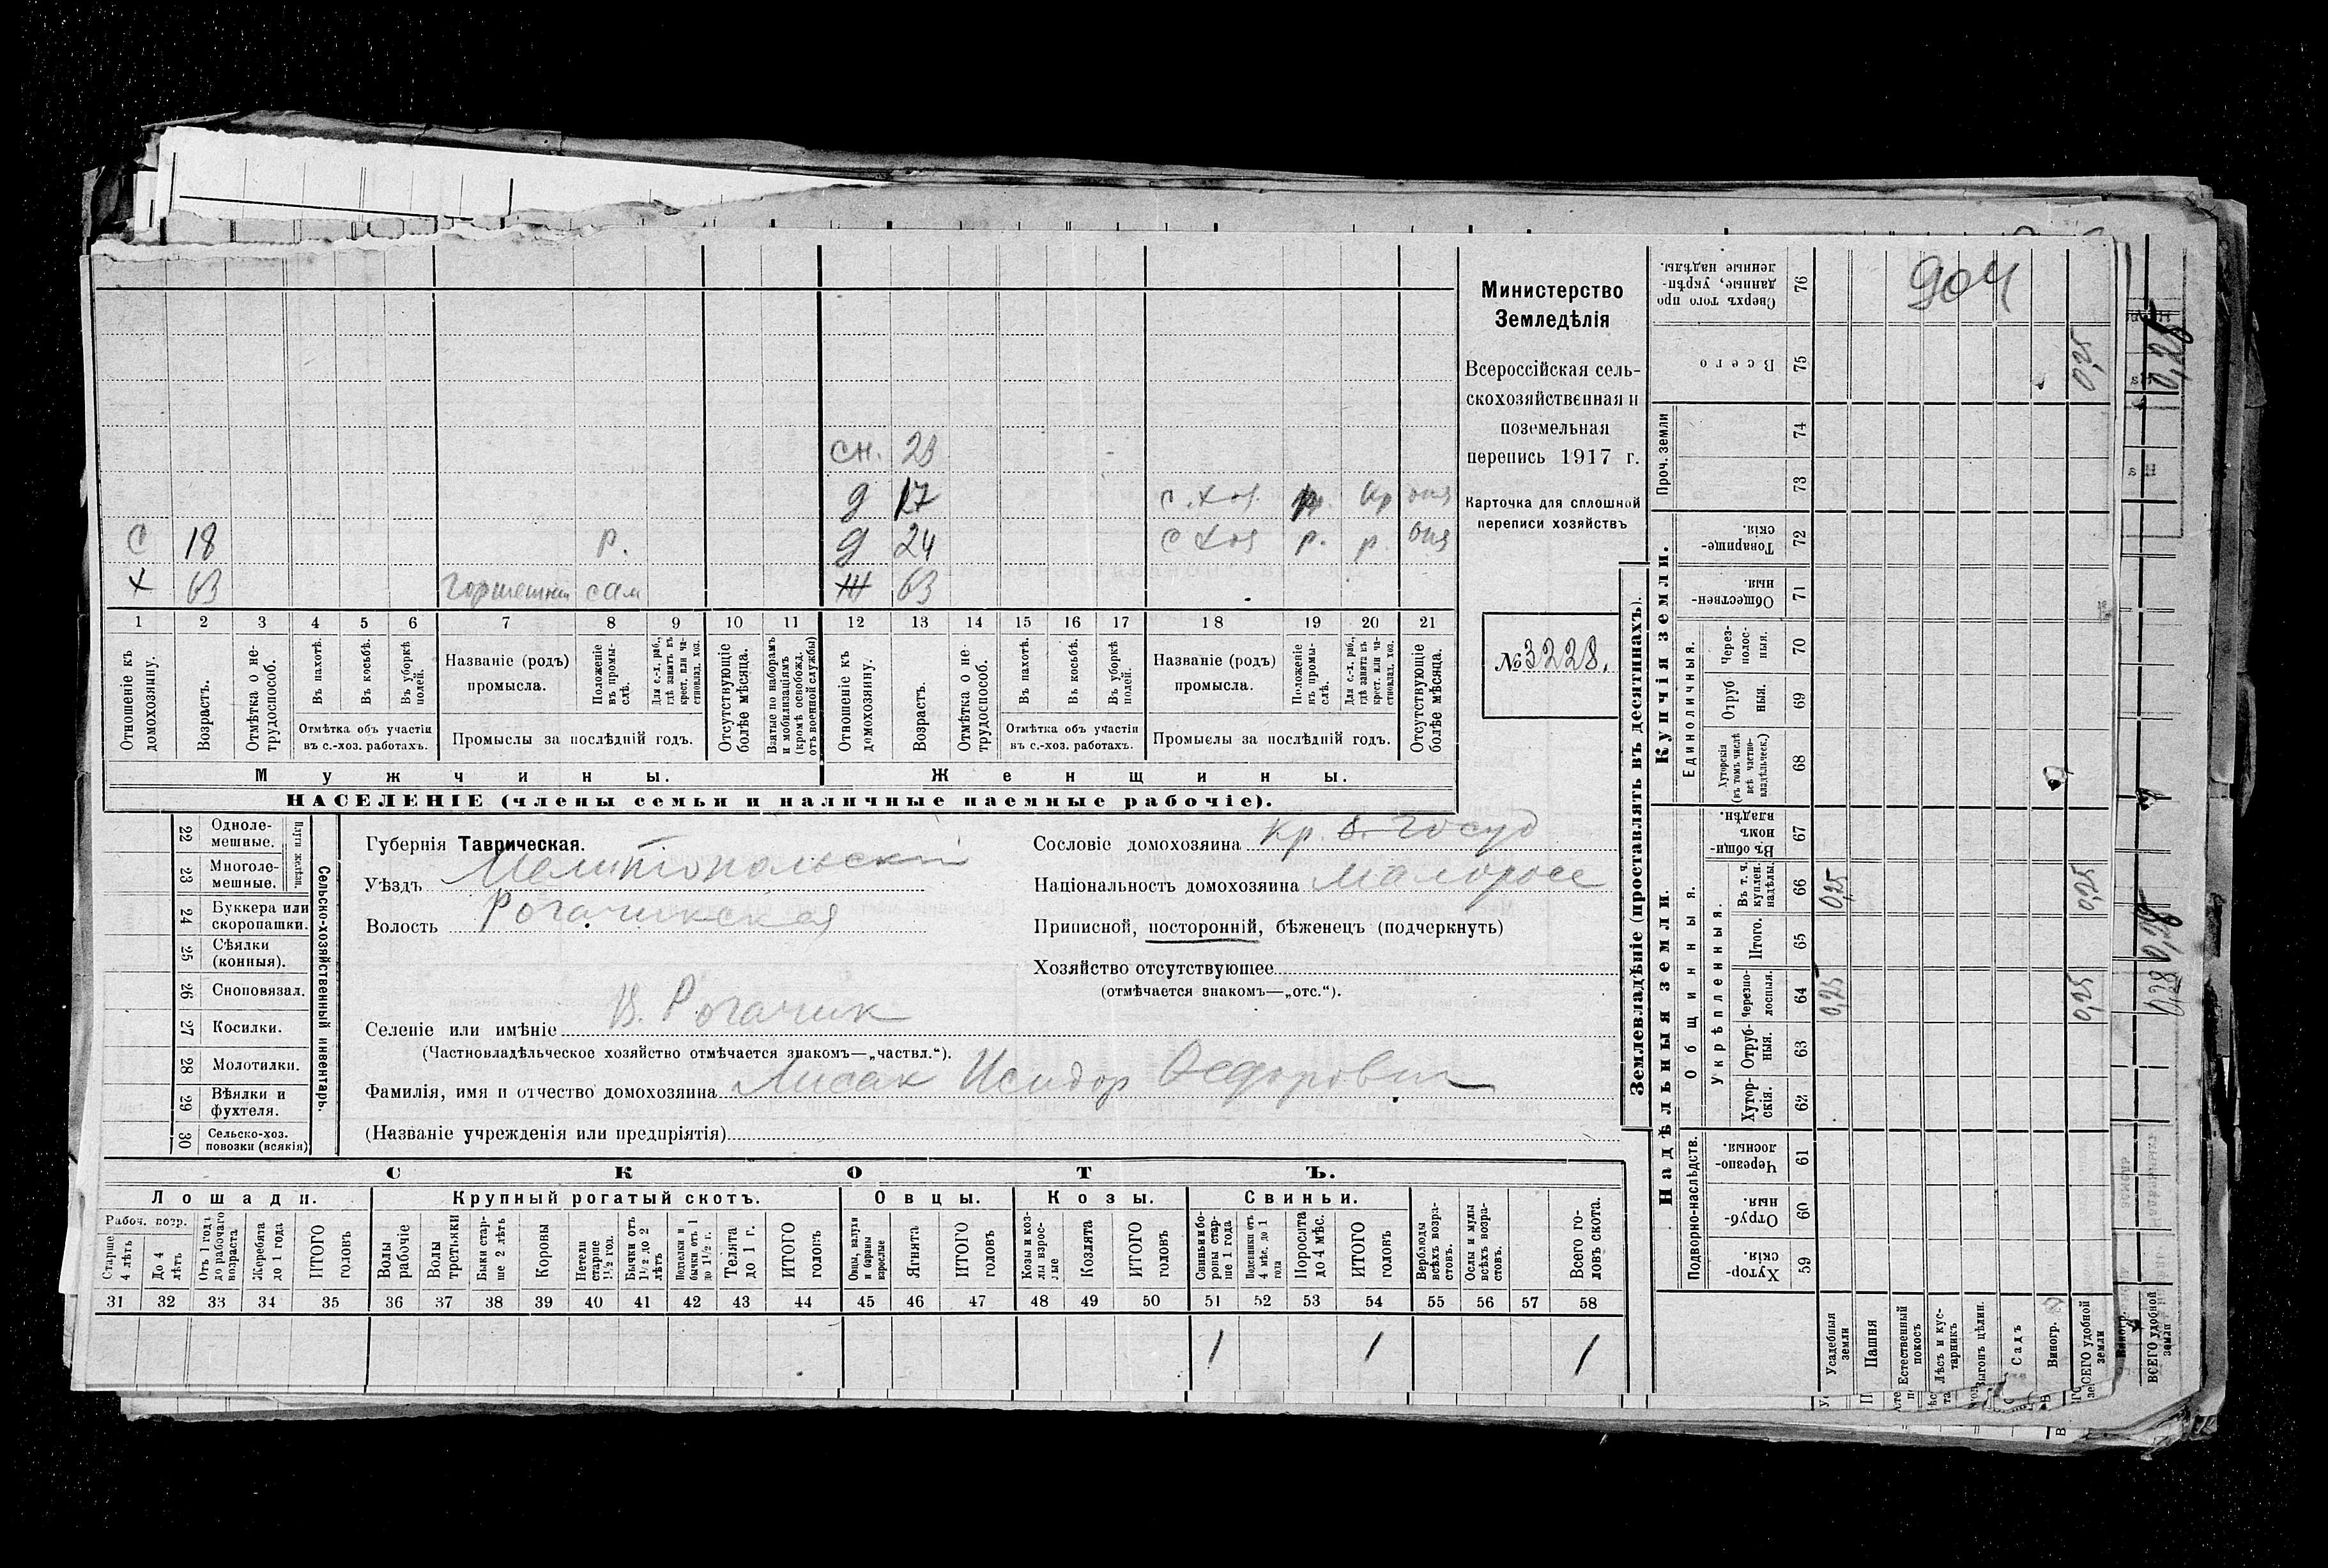 904
Министерство
Земледѣлія
Всероссійская сель-
скохозяйственная и
поземельная
перепись 1917 г.
Карточка для сплошной
переписи хозяйствъ
№ 3228.
сн. 23
д 17 с.хоз. кр отя
С 18 р. д 24 с хоз р. р. отя
х 63 горшечник сам ж 63
1 2 3 4 5 6 7 8 9 10 11 12 13 14 15 16 17 18 19 20 21
Отношеніе къ домохозяину.
Возрастъ.
Отмѣтка о не-трудоспособ.
Въ пахотѣ.
Въ косьбѣ.
Въ уборкѣ полей.
Отмѣтка объ участіи
въ с.-хоз. работахъ.
Названіе (родъ)
промысла.
Положеніе въ промы-слѣ.
Для с.-х. раб., гдѣ занятъ въ крест. или ча-стновлад. хоз.
Промыслы за послѣдній годъ.
Отсутствующіе болѣе мѣсяца.
Взятые по наборамъ и мобилизаціямъ (кромѣ освобожд. отъ военной службы)
Отношеніе къ домохозяину.
Возрастъ.
Отмѣтка о не-трудоспособ.
Въ пахотѣ.
Въ косьбѣ.
Въ уборкѣ полей.
Отмѣтка объ участіи
въ с.-хоз. работахъ.
Названіе (родъ)
промысла.
Положеніе въ промы-слѣ.
Для с.-х. раб., гдѣ занята въ крест. или ча-стновлад. хоз.
Промыслы за послѣдній годъ.
Отсутствующіе болѣе мѣсяца.
Мужчины. Женщины.
НАСЕЛЕНІЕ (члены семьи и наличные наемные рабочіе).
Сельско-хозяйственный инвентарь.
Плуги желѣзн.
22 Одноле-мешные.
23 Многоле-мешные.
24 Буккера или скоропашки.
25 Сѣялки (конныя).
26 Сноповязал.
27 Косилки.
28 Молотилки.
29 Вѣялки и фухтеля.
30 Сельско-хоз. повозки (всякія)
Губернія Таврическая.
Уѣздъ Мелитопольскій
Волость Рогачикская
Селеніе или имѣніе В. Рогачик
(Частновладѣльческое хозяйство отмѣчается знакомъ—„частвл.“).
Фамилія, имя и отчество домохозяина Лисак Исидор Федорович
(Названіе учрежденія или предпріятія)
Сословіе домохозяина кр. б. госуд
Національность домохозяина малоросс
Приписной, посторонній, бѣженецъ (подчеркнуть)
Хозяйство отсутствующее
(отмѣчается знакомъ—„отс.“).
СКОТЪ.
Лошади. Крупный рогатый скотъ. Овцы. Козы. Свиньи.
Рабоч. возр.
Старше 4 лѣтъ
До 4 лѣтъ
Отъ 1 года до рабочаго возраста
Жеребята до 1 года
ИТОГО головъ
Волы рабочіе
Волы третьяки
Быки стар-ше 2 лѣтъ
Коровы
Нетели старше 1½ год.
Бычки отъ 1½ до 2 лѣтъ
Подтелки и бычки отъ 1 до 1½ г.
Телята до 1 г.
ИТОГО головъ
Овцы, валухи и бараны взрослые
Ягнята
ИТОГО головъ
Козы и коз-лы взрос-лые
Козлята
ИТОГО головъ
Свиньи и бо-ровы стар-ше 1 года
Подсвинки отъ 4 мѣс. до 1 года
Поросята до 4 мѣс.
ИТОГО головъ
Верблюды всѣхъ возра-стовъ.
Ослы и мулы всѣхъ возра-стовъ.
Всего го-ловъ скота.
31 32 33 34 35 36 37 38 39 40 41 42 43 44 45 46 47 48 49 50 51 52 53 54 55 56 57 58
1 1 1
Землевладѣніе (проставлять въ десятинахъ).
Надѣльныя земли. Купчія земли. Проч. земли
Подворно-наслѣдств.
Общинныя.
Укрѣпленныя.
Единоличныя.
Хутор-скія. 59
Отруб-ныя. 60
Черезпо-лосныя. 61
Хутор-скія. 62
Отруб-ныя. 63
Черезпо-лосныя. 64
Итого. 65
Въ т. ч. куплен. надѣлы. 66
Въ общи-номъ владѣн. 67
Хуторскія (въ томъ числѣ всѣ частно-владѣльческ.) 68
Отруб-ныя. 69
Через-полос-ныя. 70
Обществен-ныя. 71
Товарище-скія. 72
73
74
Всего 75
Сверхъ того про-данные, укрѣп-ленные надѣлы. 76
Усадебныя земли 0,25 0,25
Пашня
Естественный покосъ
Лѣсъ и кус-тарникъ
Выгонъ цѣлин.
Садъ
Виногр.
ВСЕГО удобной земли 0,25 0,25 0,25
ВСЕГО удобной земли 0,28 0,28 0,28